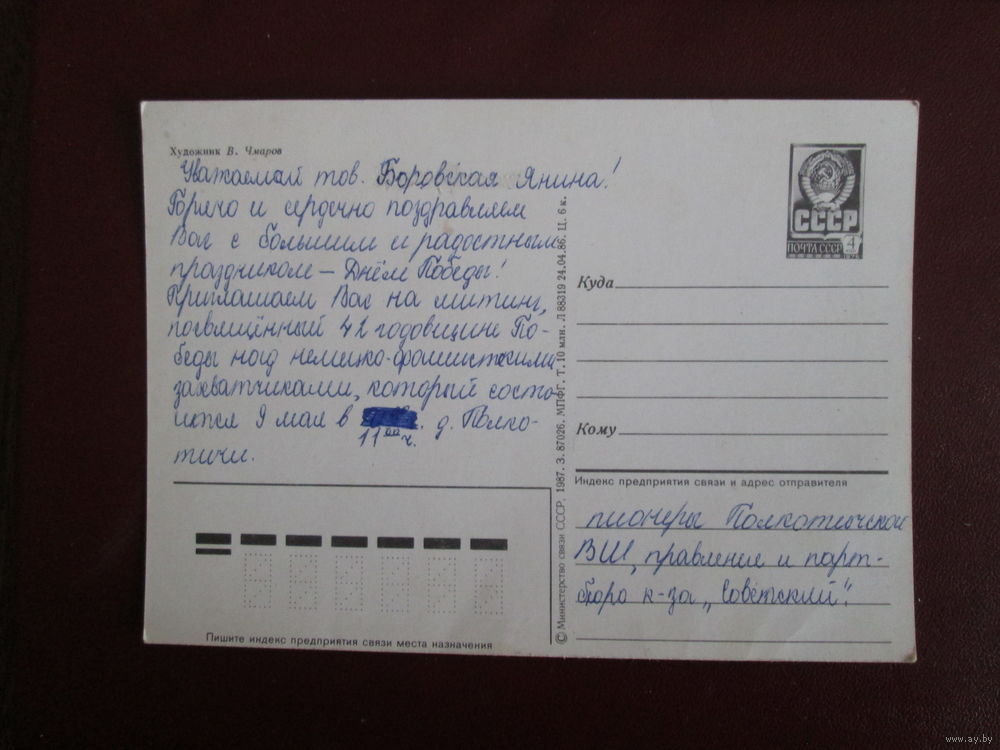 Художник В. Чмаров
Уважаемый тов. Боровская Янина!
Горячо и сердечно поздравляем
Вас с большим и радостным
праздником — Днём Победы!
Приглашаем Вас на митинг,
посвящённый 42 годовщине По-
беды над немецко-фашистскими
захватчиками, который состо-
ится 9 мая в
11 00 ч. д. Полко-
тичи.
СССР
ПОЧТА СССР 4
Куда
Кому
Индекс предприятия связи и адрес отправителя
пионеры Полкотичской
ВШ, правление и парт-
бюро к-за „Советский".
© Министерство связи СССР, 1987. З. 87026. МПФГ. Т. 10 млн. Л 88319 24.04.86. Ц. 6 к.
Пишите индекс предприятия связи места назначения
www.ay.by